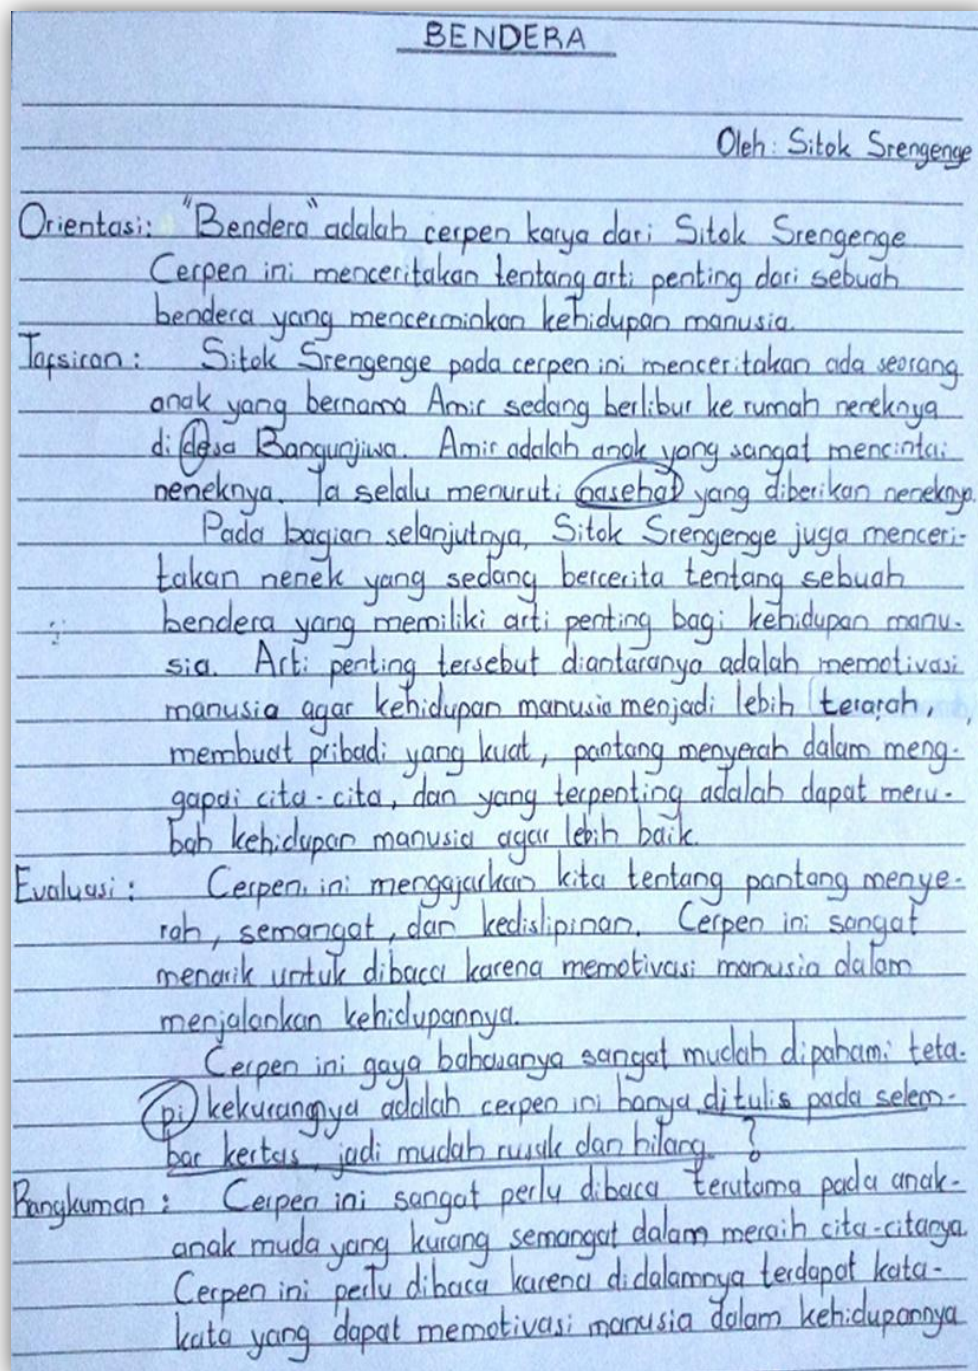 BENDERA
Oleh: Sitok Srengenge
Orientasi: "Bendera" adalah cerpen karya dari Sitok Srengenge
Cerpen ini menceritakan tentang arti penting dari sebuah
bendera yang mencerminkan kehidupan manusia.
Tafsiran: Sitok Srengenge pada cerpen ini menceritakan ada seorang
anak yang bernama Amir sedang berlibur ke rumah neneknya
di desa Bangunjiwa. Amir adalah anak yang sangat mencintai
neneknya. Ia selalu menuruti nasehat yang diberikan neneknya.
Pada bagian selanjutnya, Sitok Srengenge juga menceri-
takan nenek yang sedang bercerita tentang sebuah
bendera yang memiliki arti penting bagi kehidupan manu-
sia. Arti penting tersebut diantaranya adalah memotivasi
manusia agar kehidupan manusia menjadi lebih terarah,
membuat pribadi yang kuat, pantang menyerah dalam meng-
gapai cita-cita, dan yang terpenting adalah dapat meru-
bah kehidupan manusia agar lebih baik.
Evaluasi: Cerpen ini mengajarkan kita tentang pantang menye-
rah, semangat, dan kedislipinan. Cerpen ini sangat
menarik untuk dibaca karena memotivasi manusia dalam
menjalankan kehidupannya.
Cerpen ini gaya bahasanya sangat mudah dipahami teta-
pi kekurangnya adalah cerpen ini hanya ditulis pada selem-
bar kertas, jadi mudah rusak dan hilang. ?
Rangkuman: Cerpen ini sangat perlu dibaca terutama pada anak-
anak muda yang kurang semangat dalam meraih cita-citanya.
Cerpen ini perlu dibaca karena didalamnya terdapat kata-
kata yang dapat memotivasi manusia dalam kehidupannya